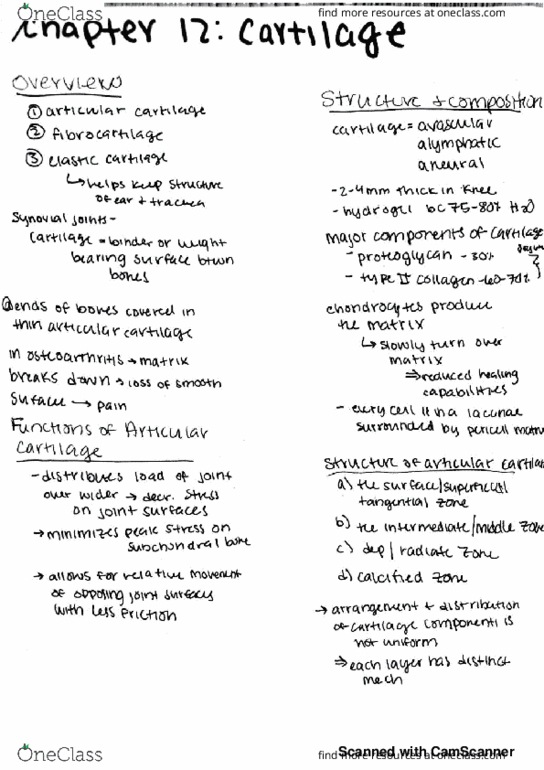 OneClass
find more resources at oneclass.com
Chapter 12: Cartilage
Overview
① articular cartilage
② fibrocartilage
③ elastic cartilage
↳ helps keep structure
of ear + trachea
Synovial joints -
cartilage = binder or weight
bearing surface btwn
bones
ends of bones covered in
thin articular cartilage
in osteoarthritis → matrix
breaks down → loss of smooth
surface → pain
Functions of Articular
Cartilage
- distributes load of joint
over wider → decr. stress
on joint surfaces
→ minimizes peak stress on
subchondral bone
→ allows for relative movement
of opposing joint surfaces
with less friction
Structure + composition
cartilage = avascular
alymphatic
aneural
- 2-4mm thick in knee
- hydrogel bc 75-80% H2O
major components of cartilage
- proteoglycan - 30%
- type II collagen - 60-70%
chondrocytes produce
the matrix
↳ slowly turn over
matrix
⇒ reduced healing
capabilities
- every cell in a lacunae
surrounded by pericell matri
Structure of articular cartila
a) the surface/superficial
tangential zone
b) the intermediate/middle zone
c) deep/radiate zone
d) calcified zone
→ arrangement + distribution
of cartilage components is
not uniform
⇒ each layer has distinct
mech
OneClass
find more resources at oneclass.com
Scanned with CamScanner